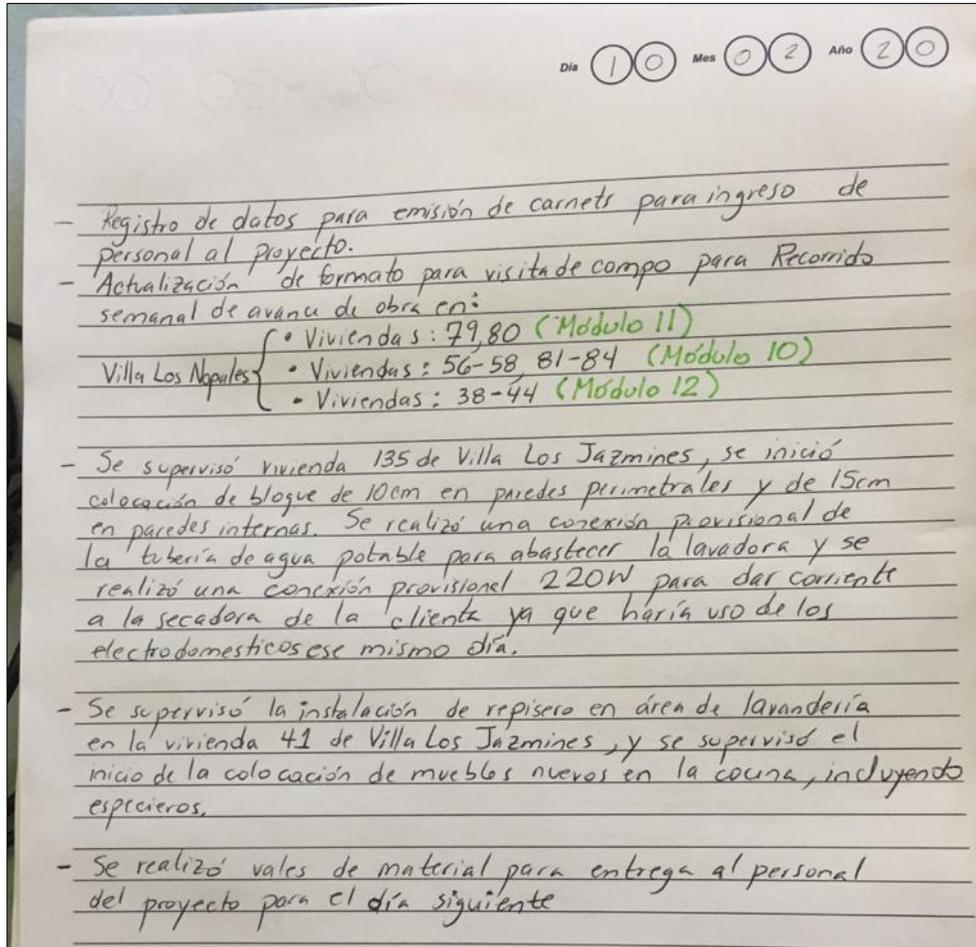 Día 10 Mes 02 Año 20
- Registro de datos para emisión de carnets para ingreso de
personal al proyecto.
- Actualización de formato para visita de campo para Recorrido
semanal de avance de obra en:
• Viviendas: 79,80 (Módulo 11)
Villa Los Nopales { • Viviendas: 56-58, 81-84 (Módulo 10)
• Viviendas: 38-44 (Módulo 12)
- Se supervisó vivienda 135 de Villa Los Jazmines, se inició
colocación de bloque de 10cm en paredes perimetrales y de 15cm
en paredes internas. Se realizó una conexión provisional de
la tubería de agua potable para abastecer la lavadora y se
realizó una conexión provisional 220W para dar corriente
a la secadora de la clienta ya que haría uso de los
electrodomesticos ese mismo día.
- Se supervisó la instalación de repisero en área de lavandería
en la vivienda 41 de Villa Los Jazmines, y se supervisó el
inicio de la colocación de muebles nuevos en la cocina, incluyendo
especieros.
- Se realizó vales de material para entrega al personal
del proyecto para el día siguiente